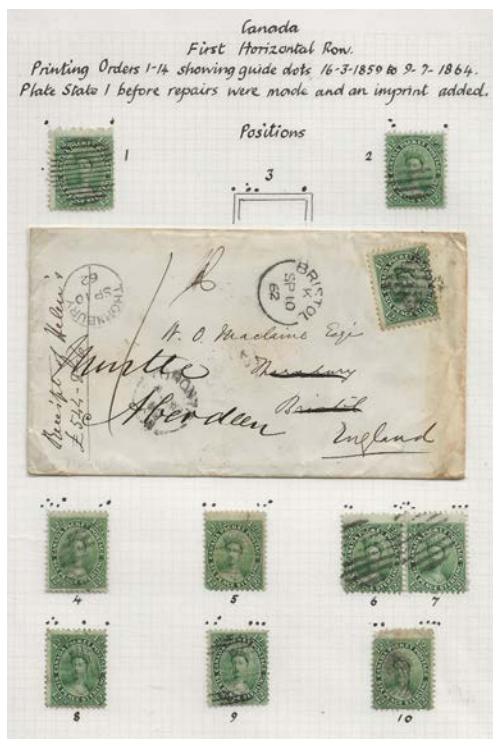 Canada
First Horizontal Row.
Printing Orders 1-14 showing guide dots 16-3-1859 to 9-7-1864.
Plate State 1 before repairs were made and an imprint added.
Positions
1
2
3
THORNBURY
SP 10
62
BRISTOL
K
SP 10
62
W. O. Maclaine Esqr
Thornbury
Bristol
England
Aberdeen
Receipt of Helen's
4
5
6
7
8
9
10